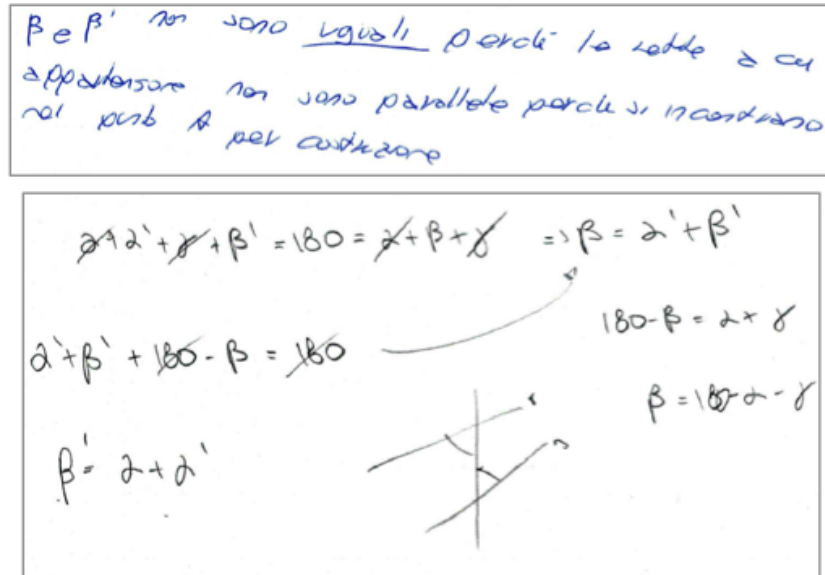 β e β' non sono uguali perché le rette a cui
appartengono non sono parallele perché si incontrano
nel punto A per costruzione
α+α'+γ+β' = 180 = α+β+γ => β = α'+β'
α'+β' + 180 - β = 180
180-β = α+γ
β = 180-α-γ
β' = α+α'
r
s